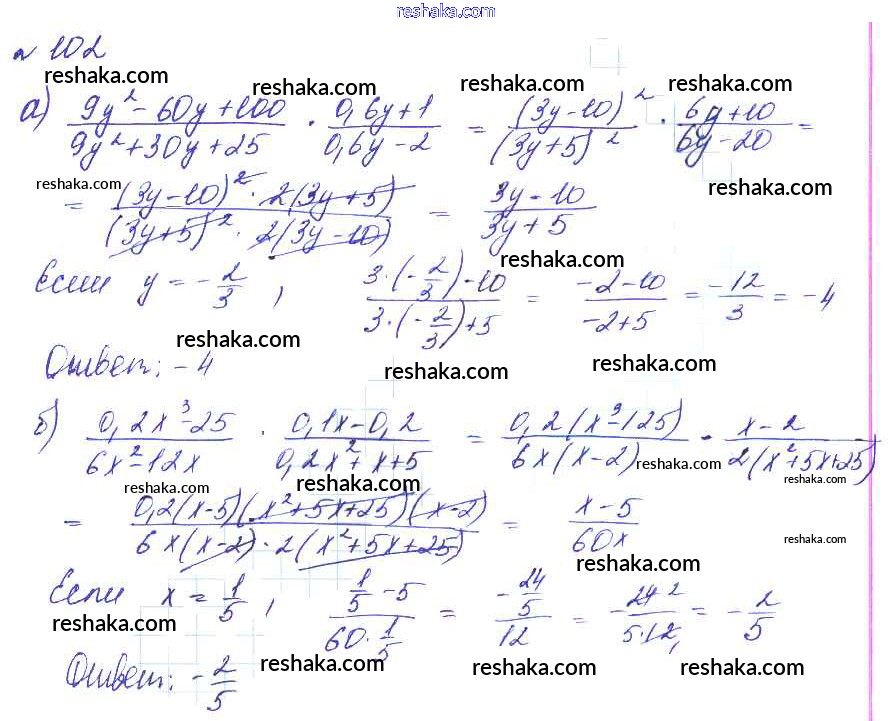 reshaka.com
№ 102
reshaka.com reshaka.com reshaka.com reshaka.com
а) (9y² - 60y + 100)/(9y² + 30y + 25) · (0,6y + 1)/(0,6y - 2) = (3y - 10)²/(3y + 5)² · (6y + 10)/(6y - 20) =
reshaka.com reshaka.com
= ((3y - 10)² · 2(3y + 5))/((3y + 5)² · 2(3y - 10)) = (3y - 10)/(3y + 5)
reshaka.com
Если y = -2/3, (3·(-2/3) - 10)/(3·(-2/3) + 5) = (-2 - 10)/(-2 + 5) = -12/3 = -4
reshaka.com reshaka.com
Ответ: -4
reshaka.com reshaka.com
б) (0,2x³ - 25)/(6x² - 12x) · (0,1x - 0,2)/(0,2x² + x + 5) = (0,2(x³ - 125))/(6x(x - 2)) · (x - 2)/(2(x² + 5x + 25))
reshaka.com reshaka.com reshaka.com reshaka.com
= (0,2(x - 5)(x² + 5x + 25)(x - 2))/(6x(x - 2) · 2(x² + 5x + 25)) = (x - 5)/(60x)
reshaka.com
reshaka.com
Если x = 1/5, (1/5 - 5)/(60 · 1/5) = (-24/5)/12 = -24 2/(5·12,) = -2/5
reshaka.com
Ответ: -2/5
reshaka.com reshaka.com reshaka.com